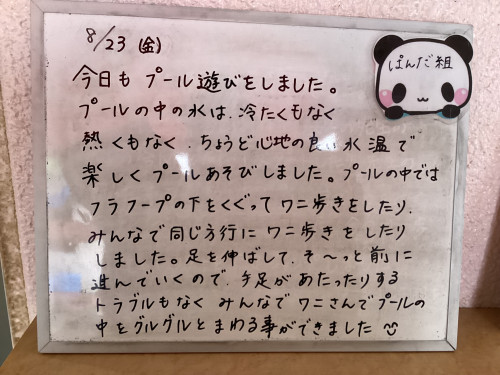 8/23 (金)
ぱんだ組
今日も プール遊びをしました。
プールの中の水は、冷たくもなく
熱くもなく、ちょうど心地の良い水温で
楽しくプールあそびしました。プールの中では
フラフープの下をくぐって ワニ歩きをしたり、
みんなで同じ方行に ワニ歩きを したり
しました。足を伸ばして、そ〜っと前に
進んでいくので、手足があたったりする
トラブルもなく みんなで ワニさんでプールの
中をグルグルとまわる事ができました